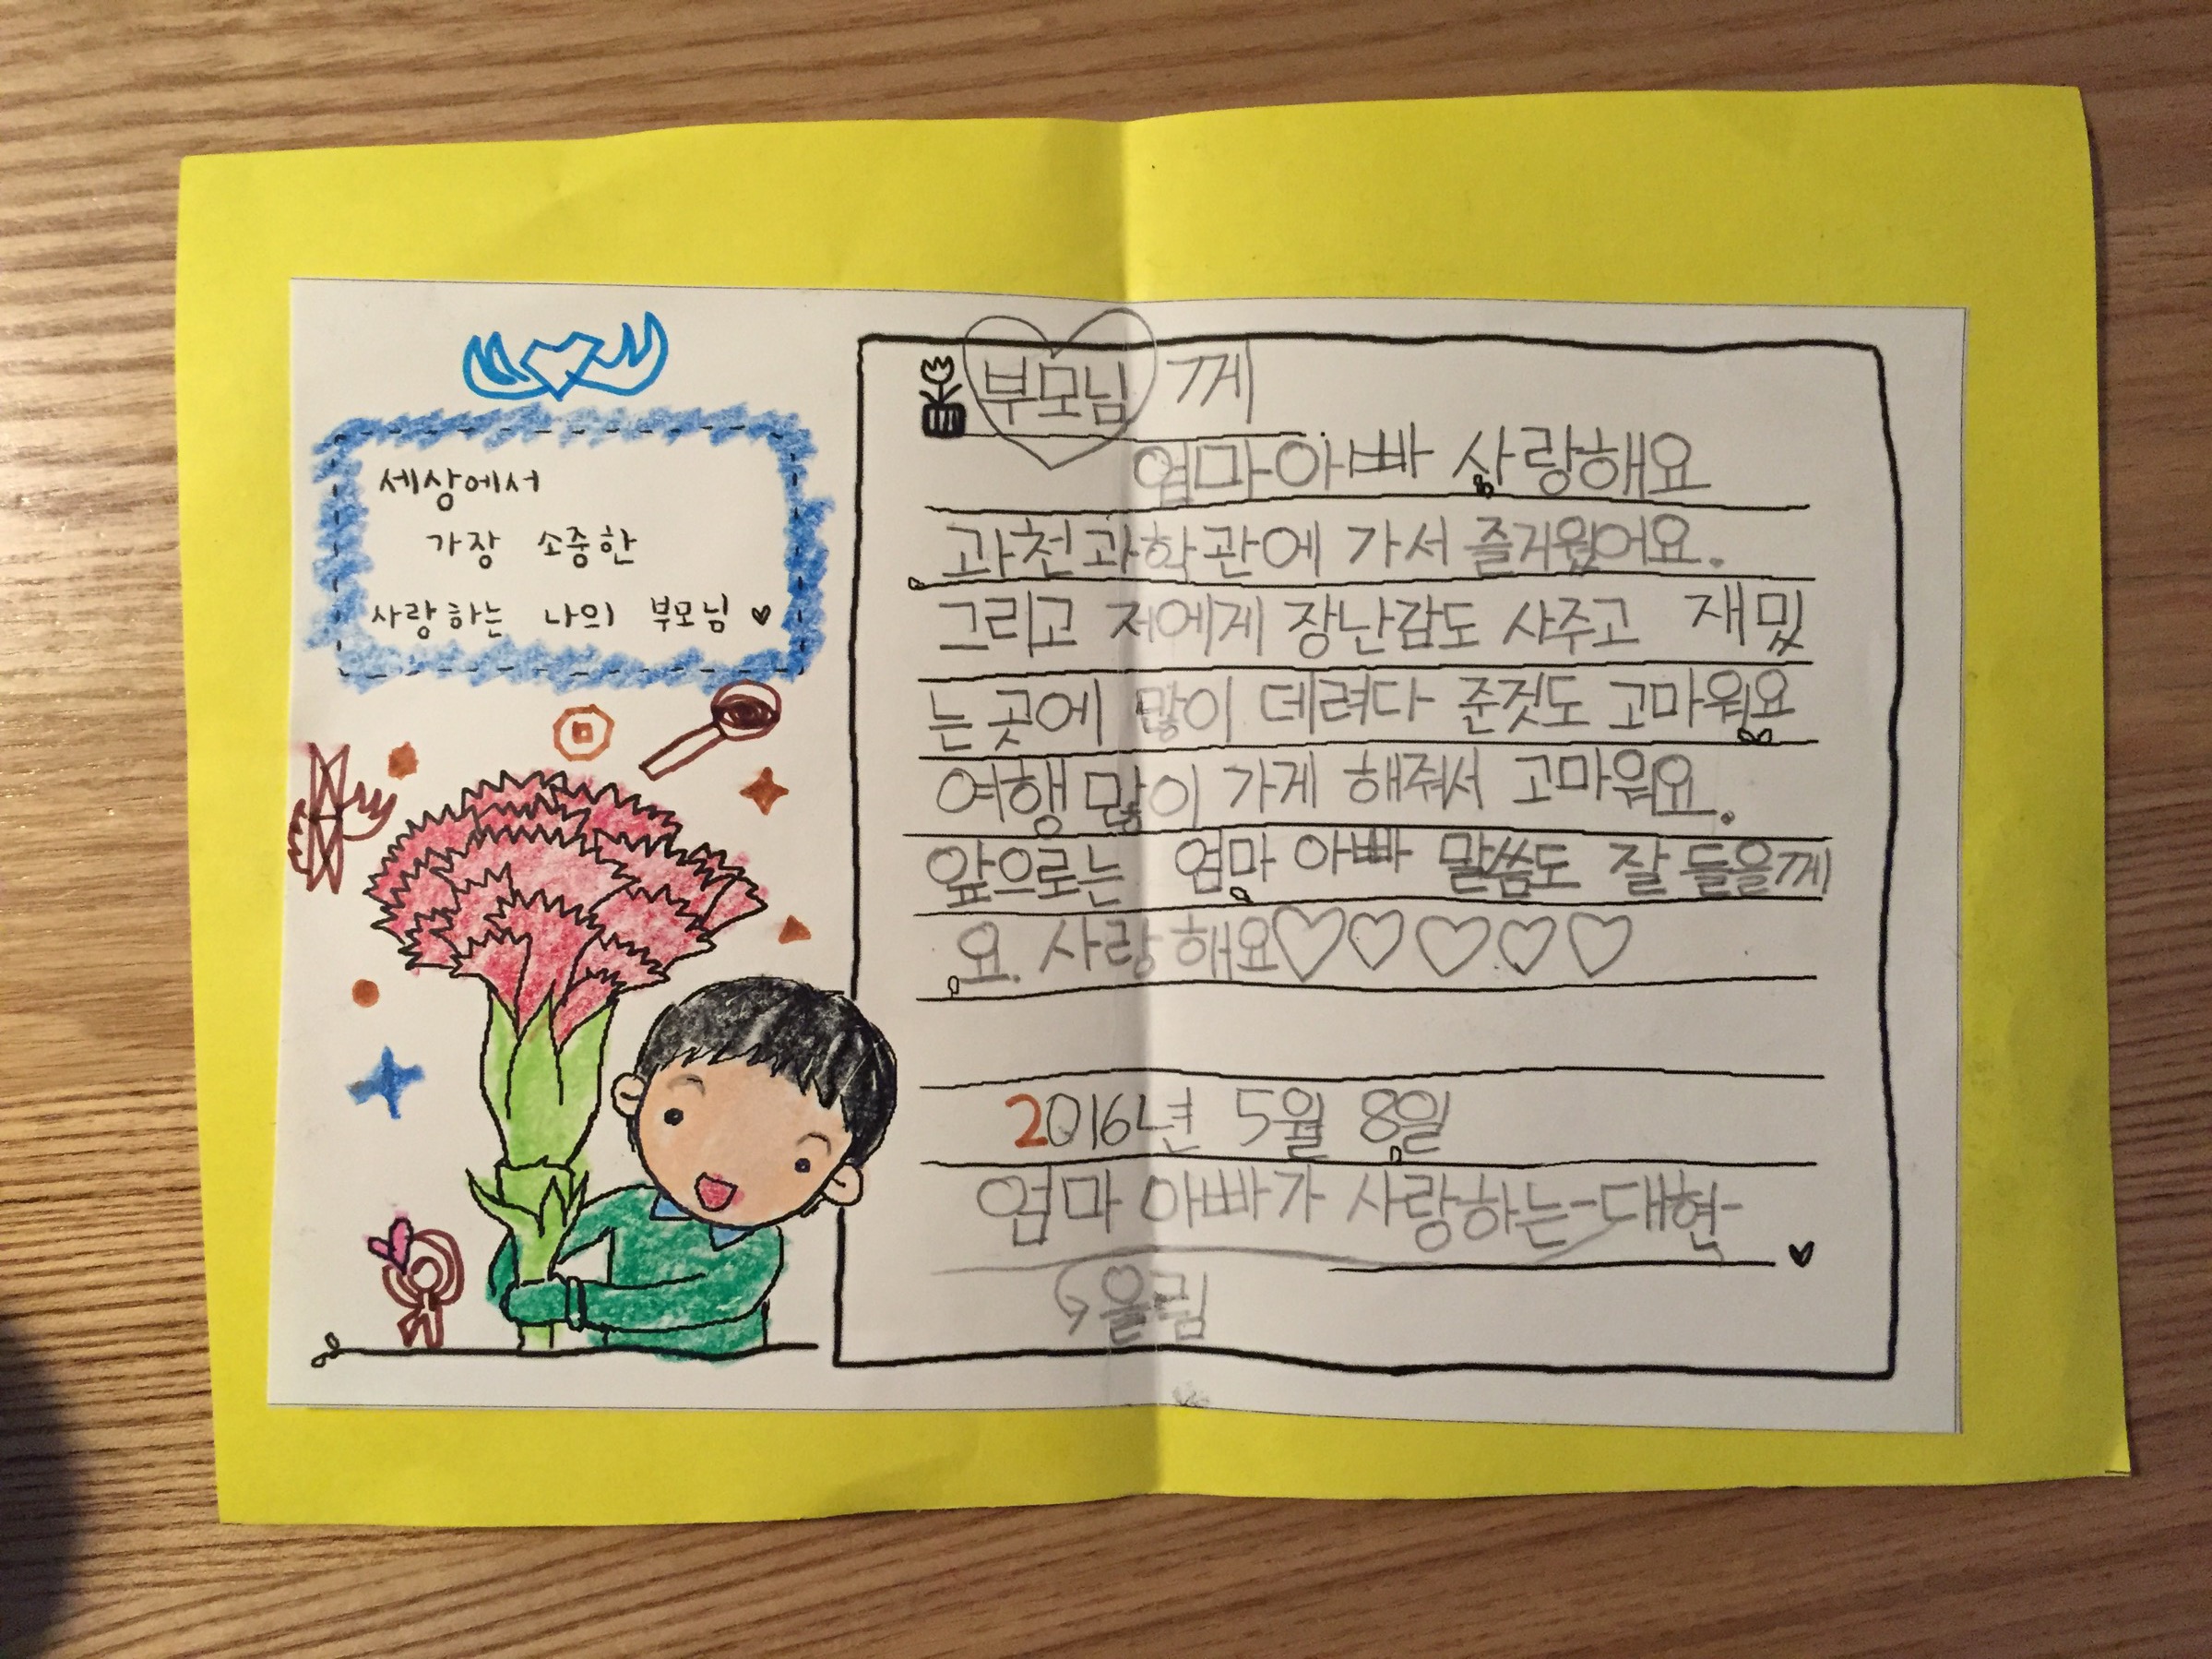 세상에서
가장 소중한
사랑하는 나의 부모님 ♥
부모님 께
엄마아빠 사랑해요
과천과학관에 가서 즐거웠어요.
그리고 저에게 장난감도 사주고 재밌
는곳에 많이 데려다 준것도 고마워요
여행많이 가게 해줘서 고마워요.
앞으로는 엄마 아빠 말씀도 잘 들을께
요. 사랑해요♡♡♡♡♡
2016년 5월 8일
엄마 아빠가 사랑하는-대현-
올림